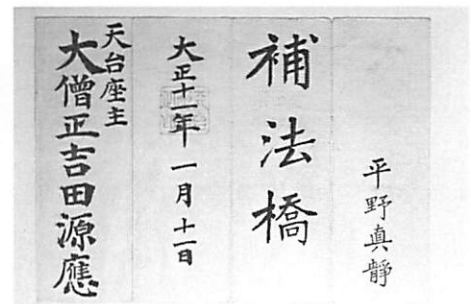 平野真靜
補法橋
大正十一年一月十一日
天台座主
大僧正吉田源應